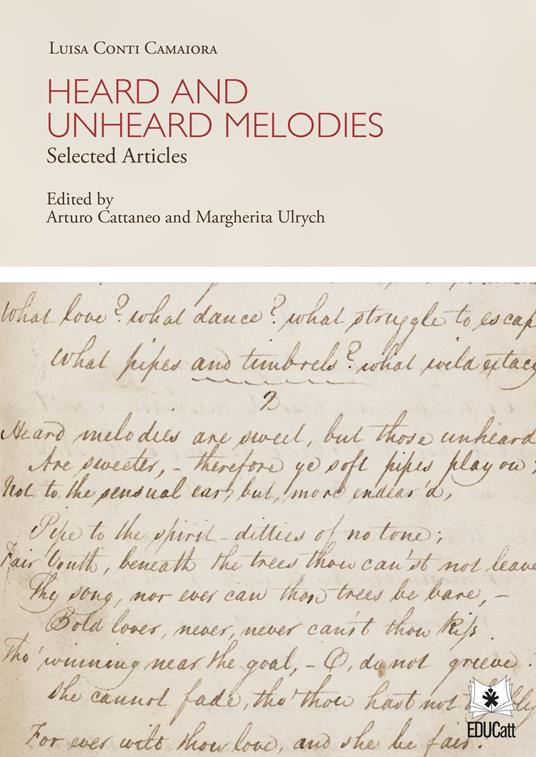 LUISA CONTI CAMAIORA
HEARD AND
UNHEARD MELODIES
Selected Articles
Edited by
Arturo Cattaneo and Margherita Ulrych
What love? what dance? what struggle to escap
What pipes and timbrels? what wild extacy
2
Heard melodies are sweet, but those unheard
Are sweeter, – therefore ye soft pipes play on;
Not to the sensual ear, but, more endear'd,
Pipe to the spirit – ditties of no tone;
Fair Youth, beneath the trees thou can'st not leave
Thy song, nor ever can those trees be bare, –
Bold lover, never, never can'st thou kiss.
Tho' winning near the goal, – O, do not grieve!
She cannot fade, tho' thou hast not
For ever wilt thou love, and she be fair.
EDUCatt